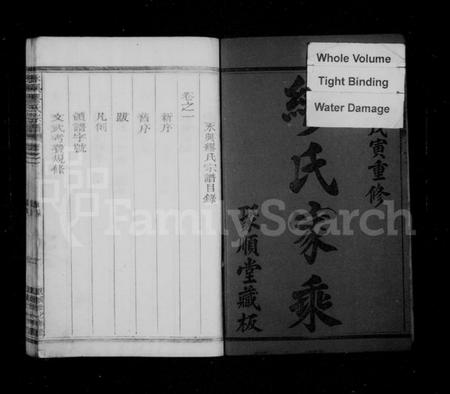 Whole Volume
Tight Binding
Water Damage
寅重修
繆氏家乘
聚順堂藏板
永興繆氏宗譜目錄
卷之一
新序
舊序
跋
凡例
領譜字號
文武考費規條
FamilySearch